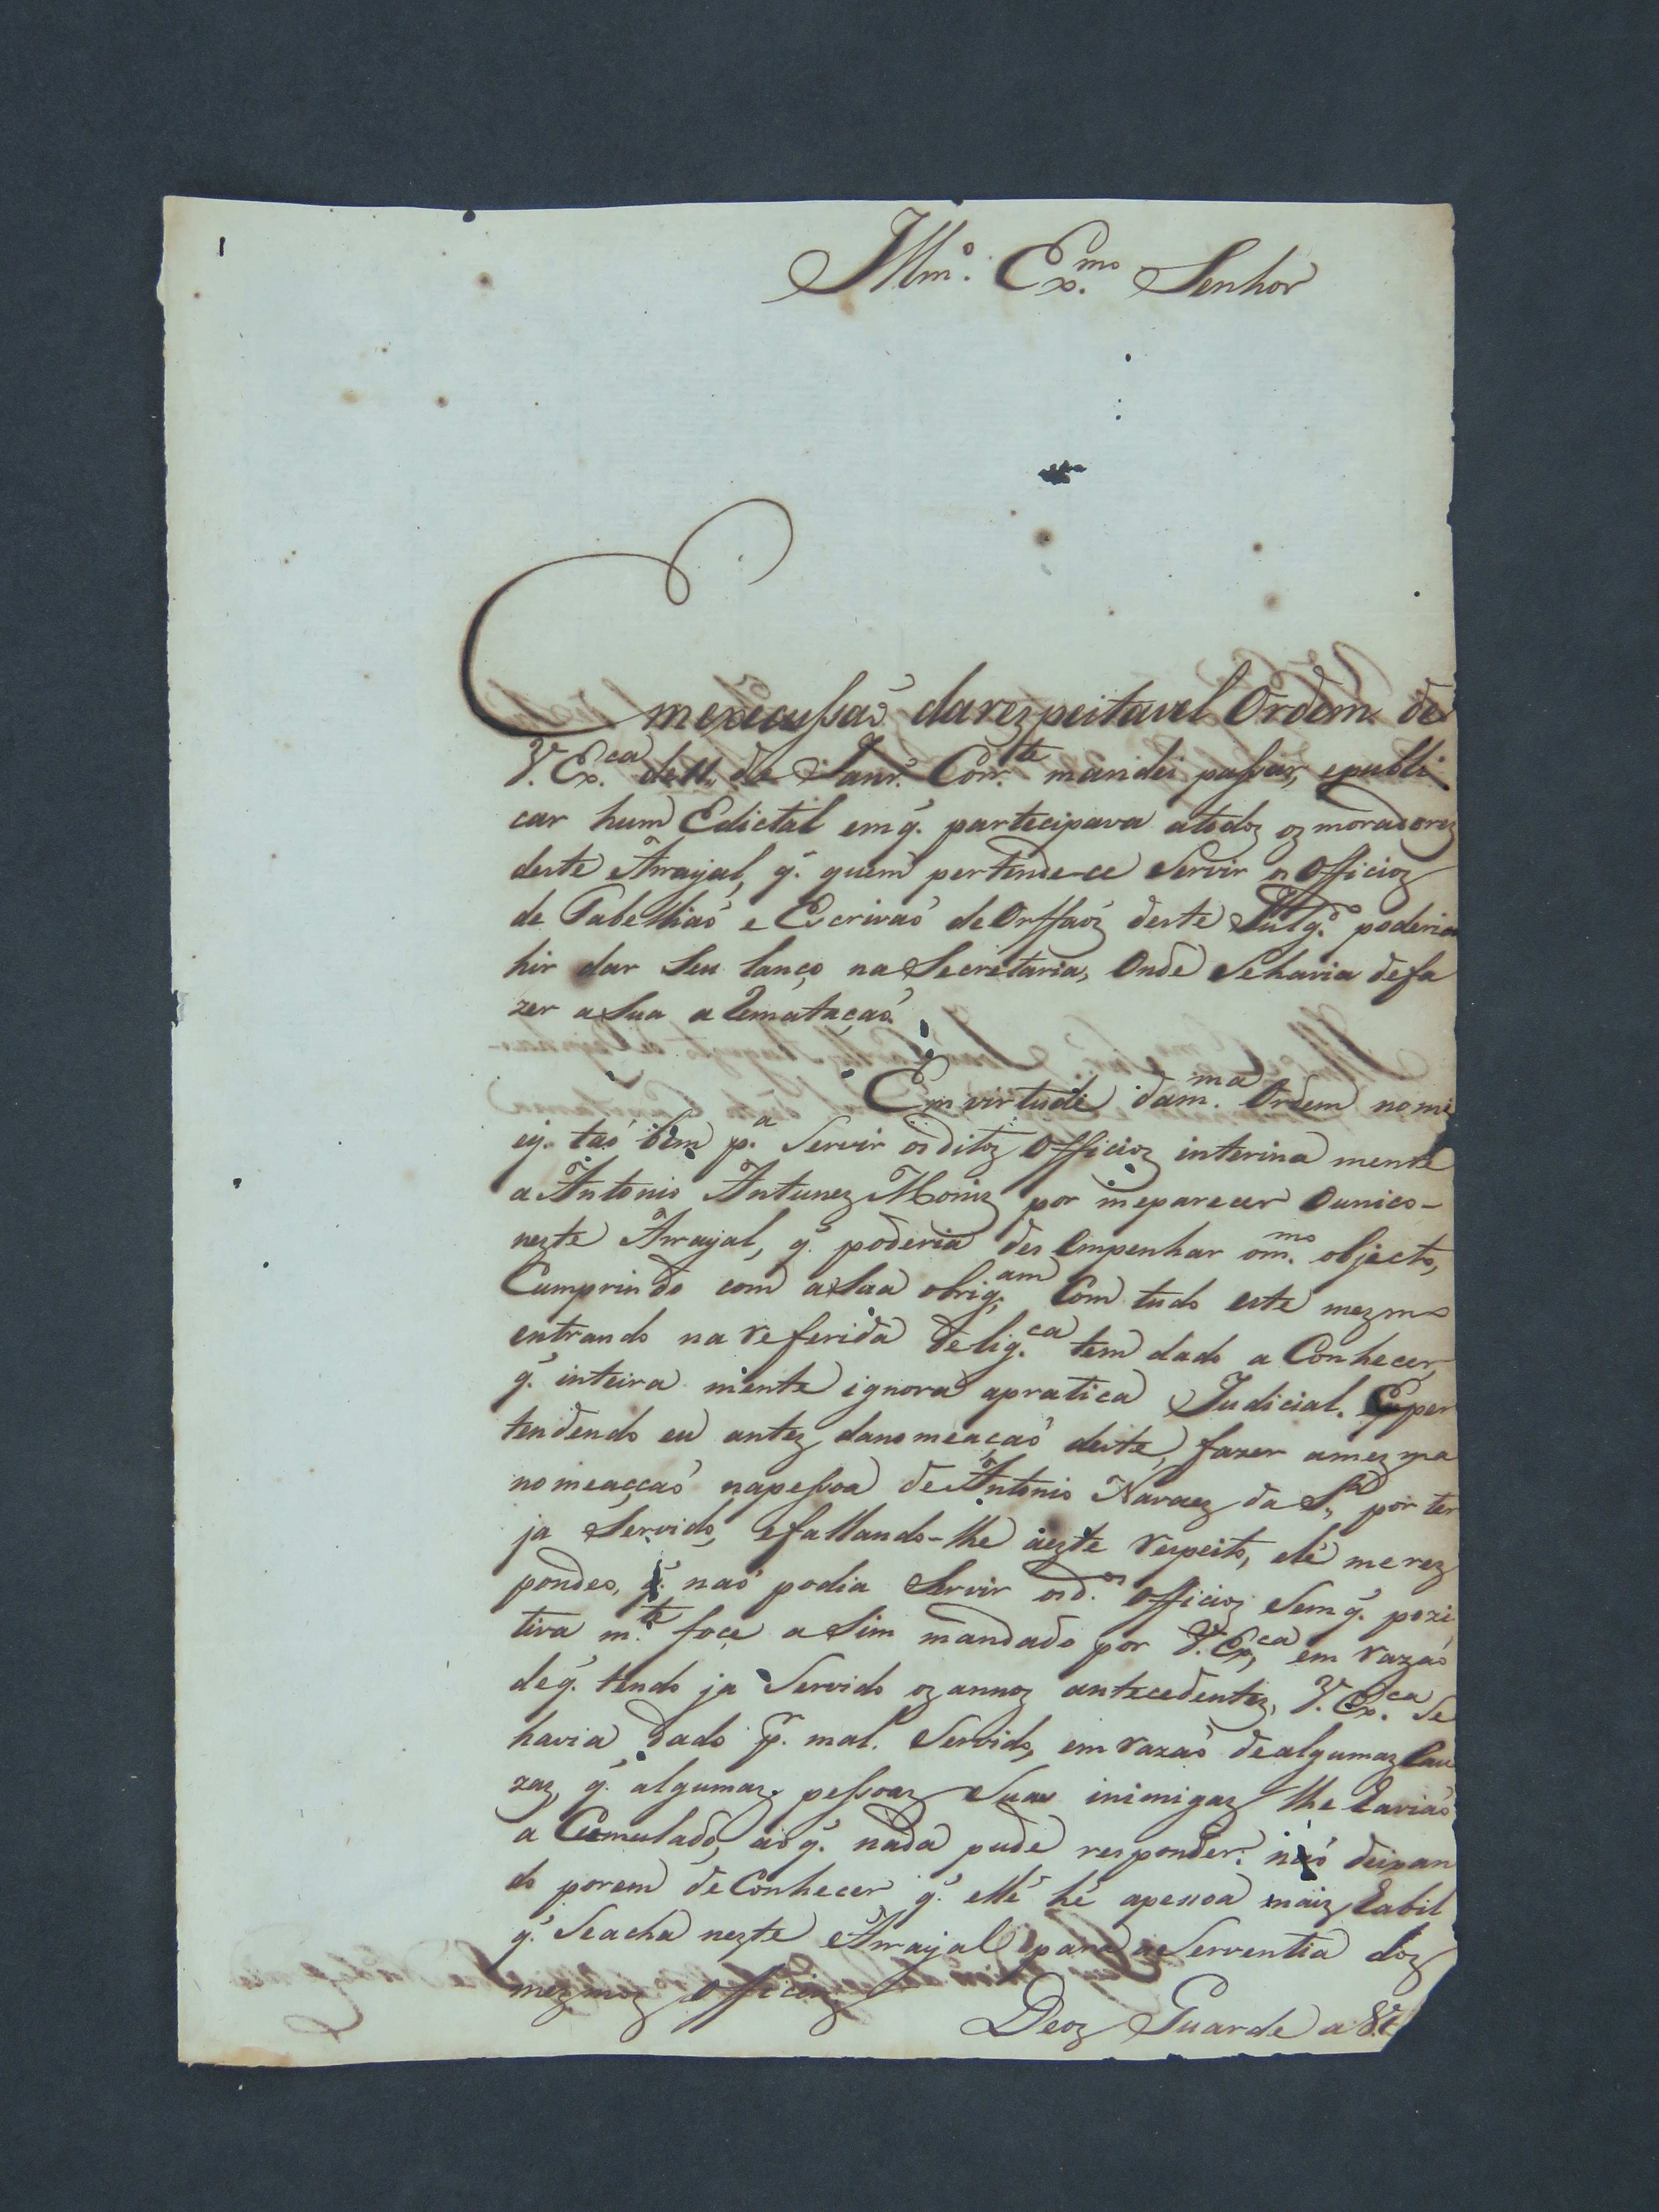 Illmº. Ex.mo Senhor
Em execussaõ da respeitavel Ordem de
V. Ex.ca de 11 de Janrº. Corr.te mandei passar, e publi
car hum Edictal em q̃. partecipava a todoz oz moradorez
deste Arrayal, q̃. quem pertende-ce Servir os Officioz
de Tabelliaõ e Escrivaõ de Orffaõz deste Julgº. poderia
hir dar Seu lanço na Secretaria, Onde Se havia de fa
zer a Sua a Rematacaõ.
Em virtude da m.ma Ordem nomi
ey. taõ bem p.a Servir os ditoz Officioz interina mente
a Antonio Antunez Moniz por me parecer O unico-
nezte Arrayal, q̃. poderia des empenhar o m.mo objecto,
Cumprindo com a Sua obrig.am Com tudo este mezmo
entrando na referida delig.ca tem dado a Conhecer,
q̃. inteira mente ignora a pratica Judicial. E per
tendendo eu antez da nomeaçaõ deste, fazer a mezma
nomeaçcaõ na pessoa de Antonio Navaez da S.a por ter
ja Servido, e fallando-lhe aezte respeito, elé me rez
pondeo, q̃. naõ podia Servir os d.os Officioz Sem q̃. pozi
tiva m.te foce a Sim mandado por V. Ex.ca em razaõ
de q̃. tendo ja Servido oz annoz antecedentez, V. Ex.ca Se
havia dado p.r mal. Servido, em razaõ de algumaz Cau
zaz, q̃. algumaz pessoaz Suas inimigaz lhe haviaõ
a Cumulado, ao q̃. nada pude responder: naõ deixan
do porem de Conhecer q̃. ellé hé a pessoa maiz habil
q̃. Se acha nezte Arrayal para a Serventia doz
mezmoz Officioz
Deoz Guarde a V.